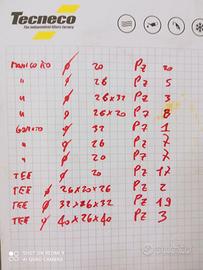 Tecneco
The independent filters factory
MANICOTTO Ø 20 PZ 20
" Ø 26 PZ 5
" Ø 26x32 PZ 3
" Ø 26x20 PZ 8
GOMITO Ø 32 PZ 1
" Ø 26 PZ 7
" Ø 20 PZ 7
TEE Ø 20 PZ 17
TEE Ø 26x20x26 PZ 2
TEE Ø 32x26x32 PZ 19
TEE Ø 40x26x40 PZ 3
SHOT ON REDMI 9
AI QUAD CAMERA